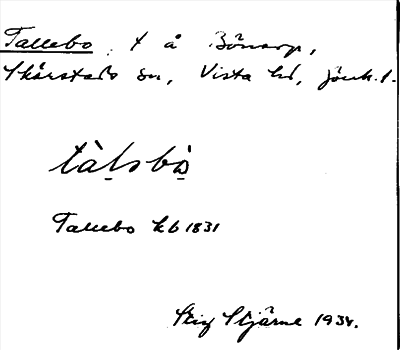 Tallebo, t å Bönarp,
Skärstads sn, Vista hd, Jönk. l.
tàḷsbò̱
Tallebo kb 1831
Stig Stjärne 1934.